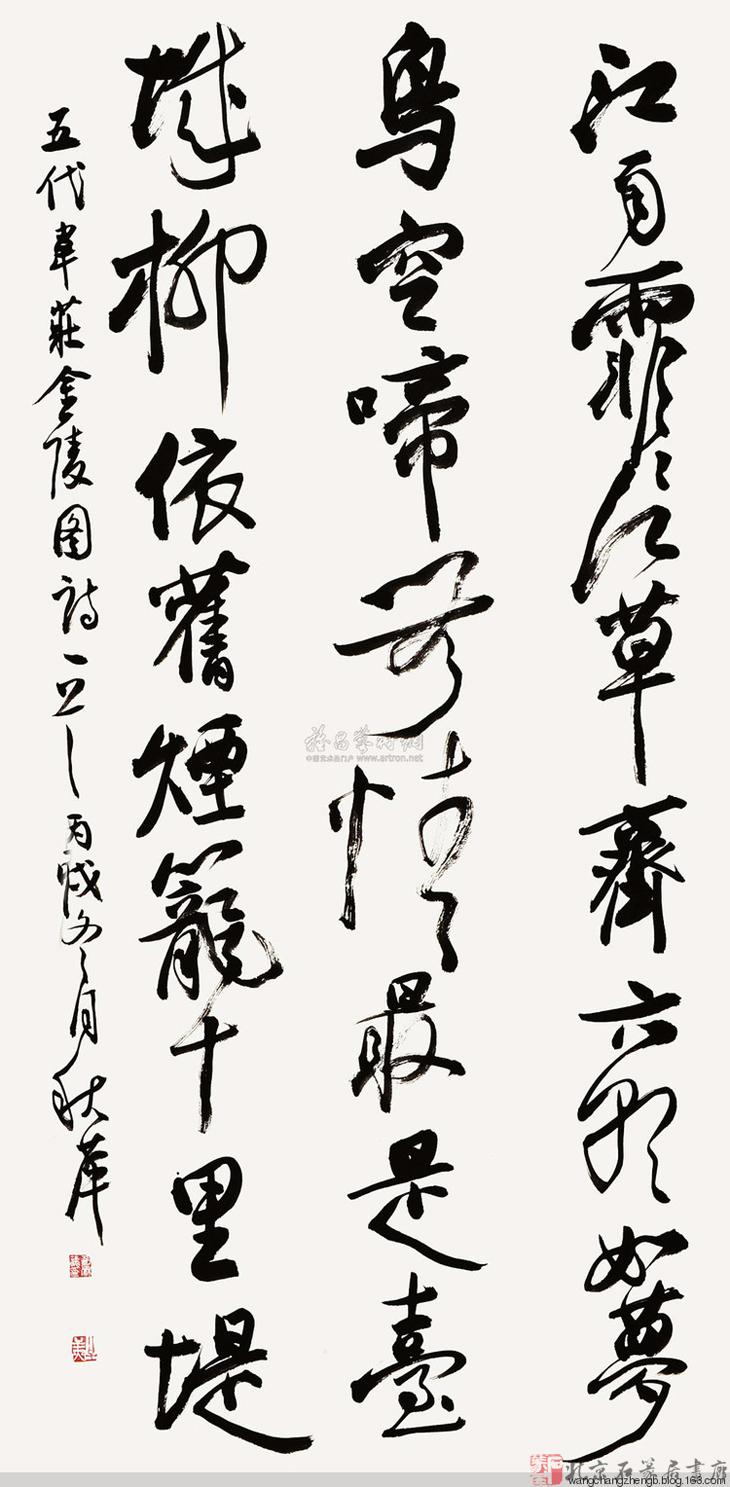 江雨霏霏江草齊六朝如夢
鳥空啼無情最是臺
城柳依舊煙籠十里堤
五代韋莊金陵圖詩一首 丙戌冬月秋
雅昌藝術網
中国艺术品门户 www.artron.net
wangchangzhengb.blog.163.com